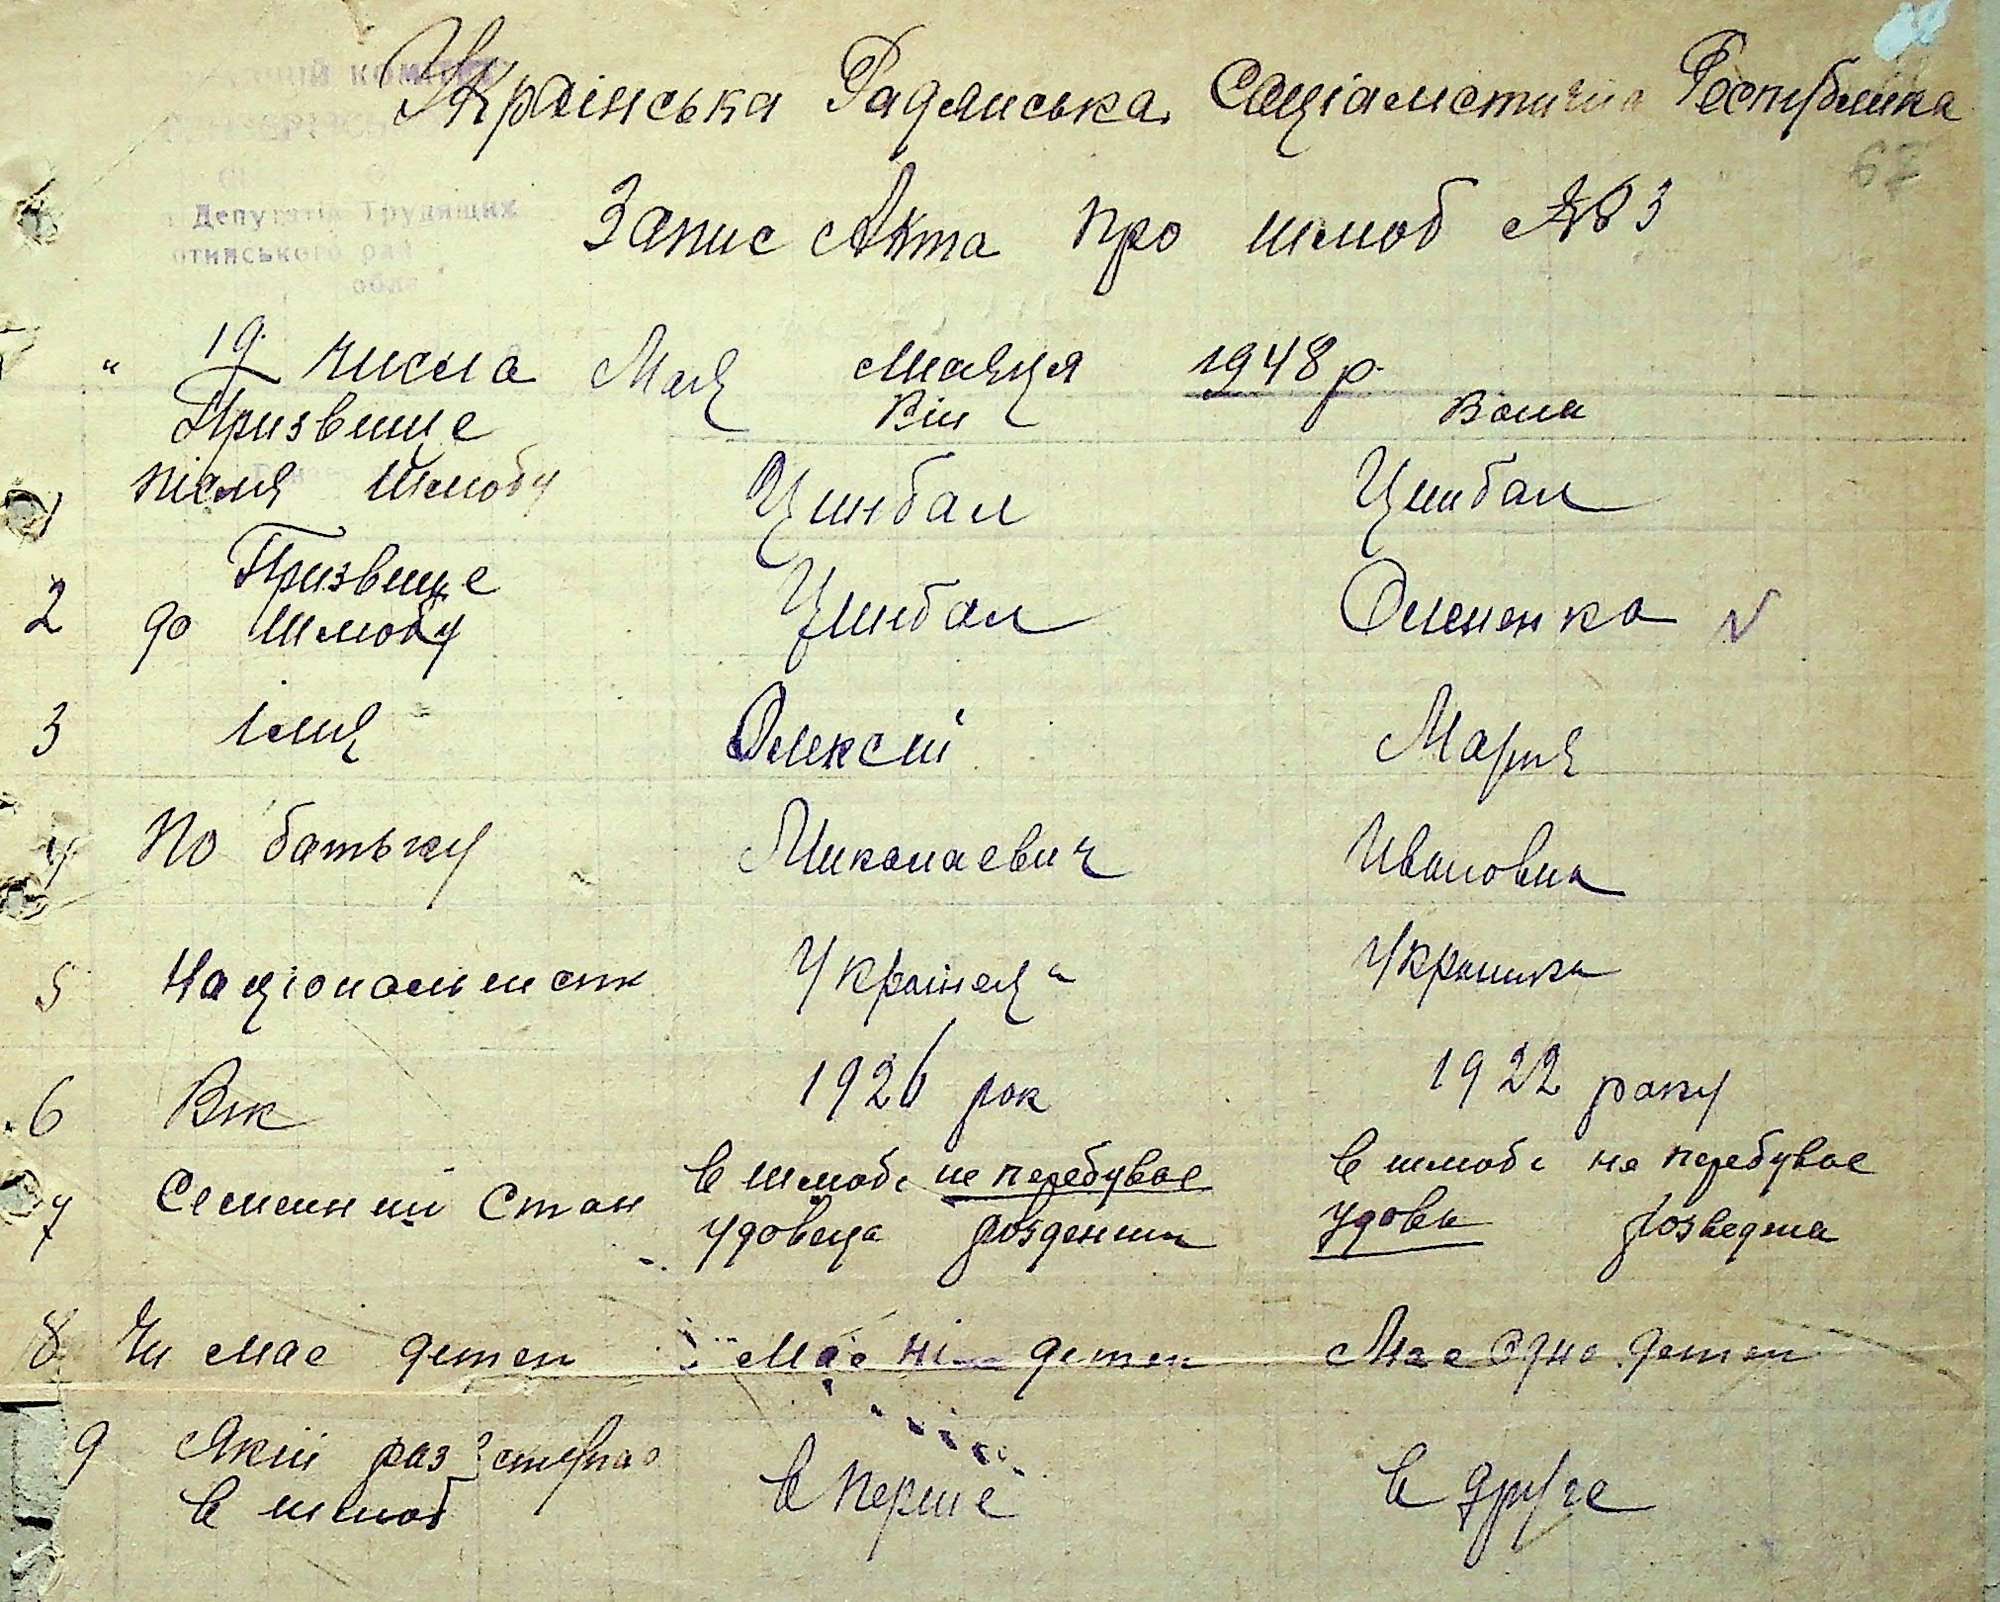 Українська Радянська Соціалистична Республика
67
Депутатів Трудящих
отинського рай
обла
Запис Акта про шлюб №3
" 19 числа Мая місяця 1948 р.
Він Вона
1 Призвище після Шлюбу Цимбал Цимбал
2 Призвище до Шлюбу Цимбал Олененко
3 імия Олексій Мария
4 По батьку Миколаевич Ивановна
5 Національність Українець Украинка
6 Вік 1926 рок 1922 року
7 Семейний Стан в шлюбі не перебувае в шлюбі не перебувае
удовець розденний удова розведена
8 Чи мае детей мае ні детей Мае одно детей
9 Який раз вступае в перше в друге
в шлюб